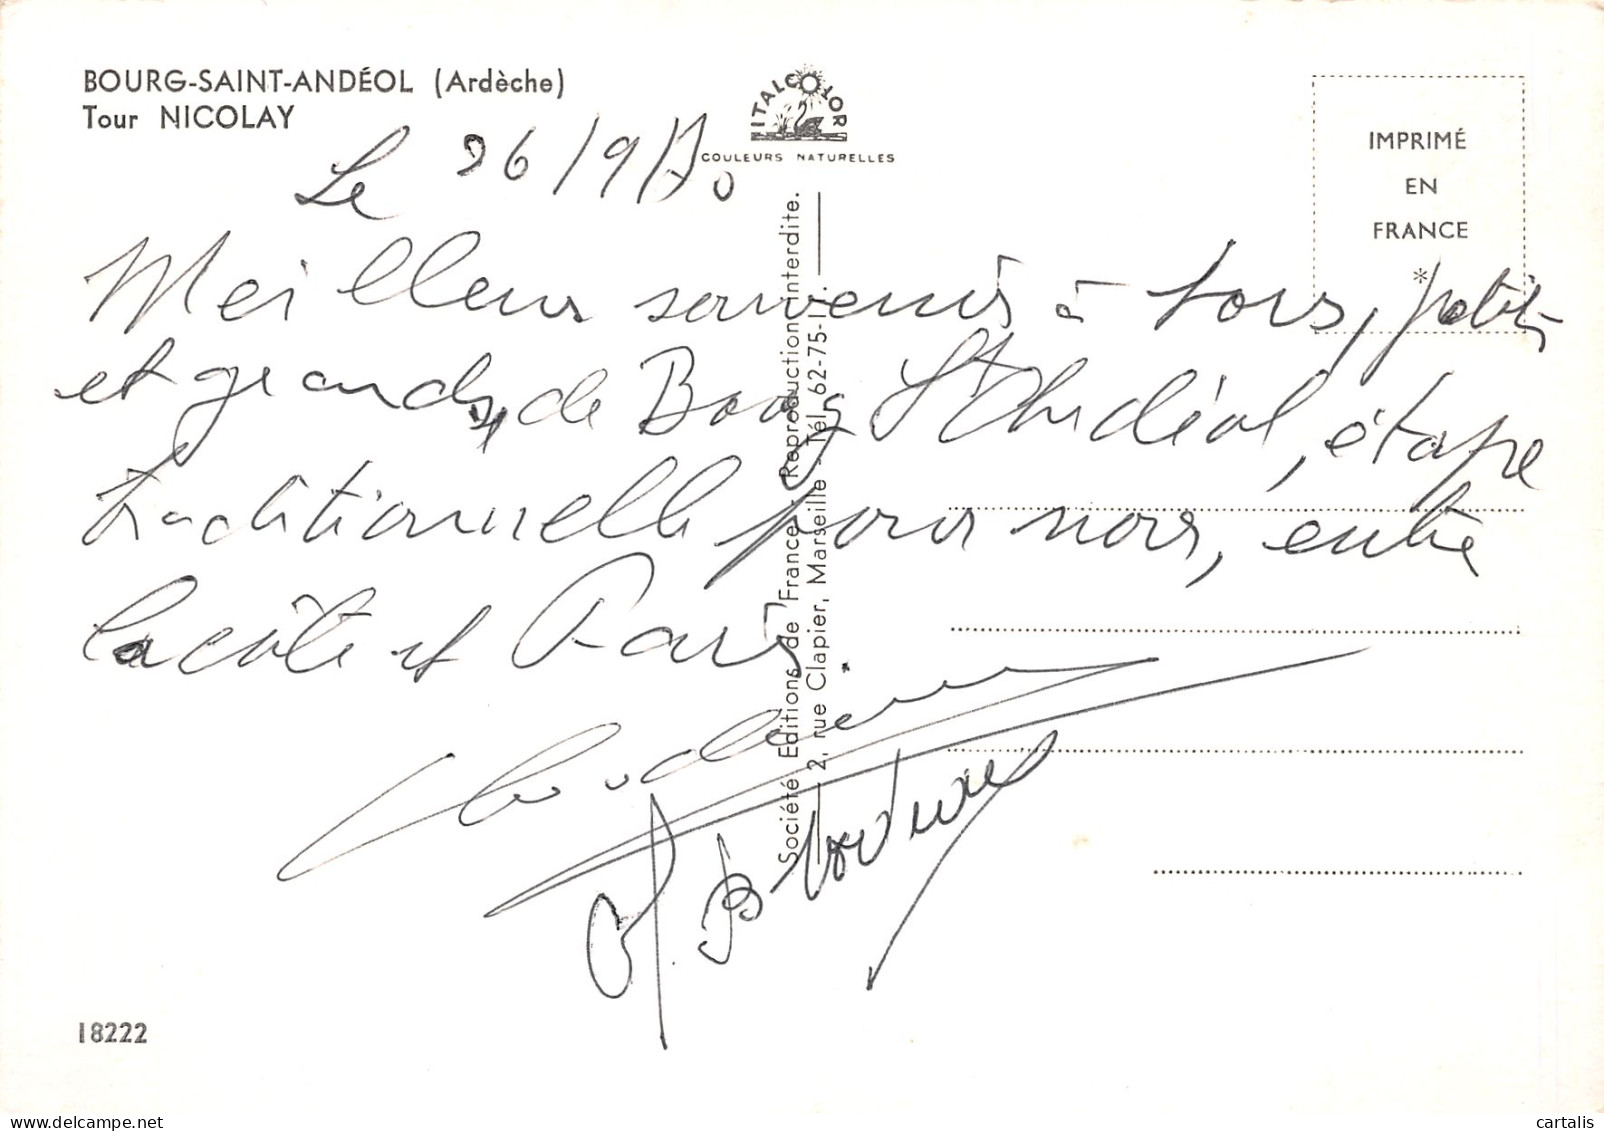 BOURG-SAINT-ANDÉOL (Ardèche)
Tour NICOLAY
ITALCOLOR
COULEURS NATURELLES
IMPRIMÉ
EN
FRANCE
*
Le 26/9/70
Meilleurs souvenirs à tous, petits
et grands, de Bourg St Andéol, étape
traditionnelle pour nous, entre
la côte et Paris.
Société Editions de France - Reproduction interdite.
2, rue Clapier, Marseille - Tél. 62-75-11.
18222
delcampe.net
cartalis